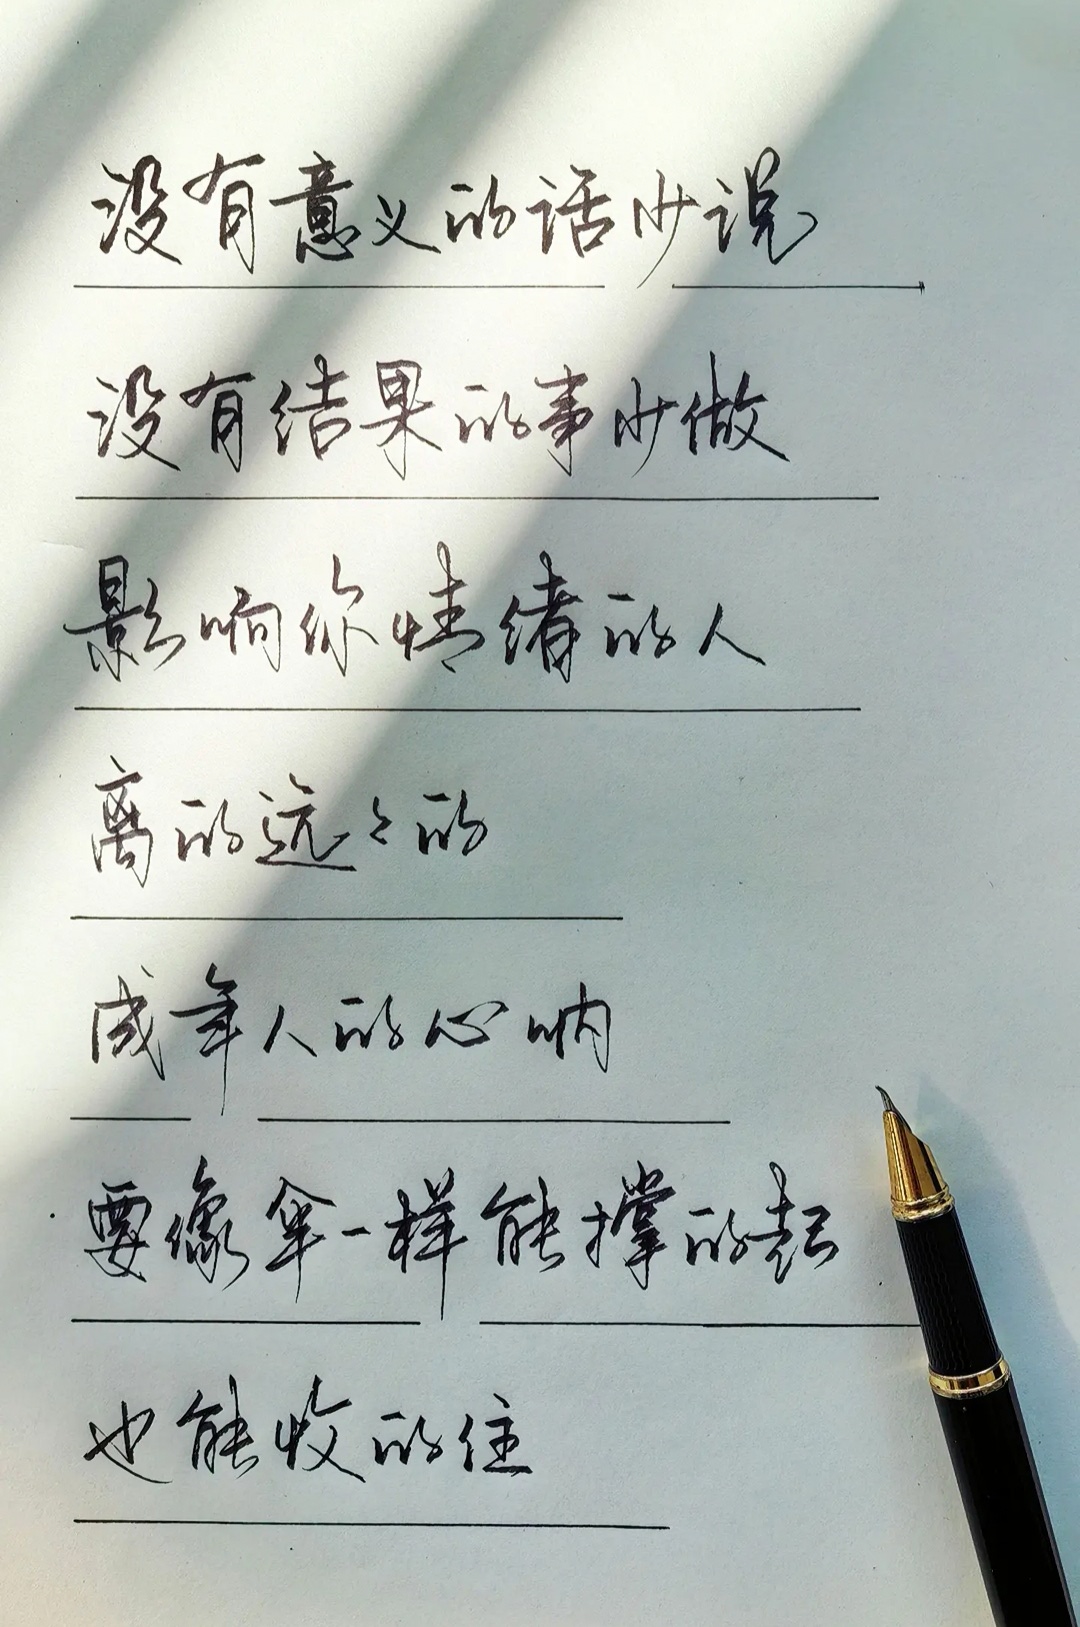 没有意义的话少说
没有结果的事少做
影响你情绪的人
离的远々的
成年人的心呐
要像伞一样能撑的起
也能收的住